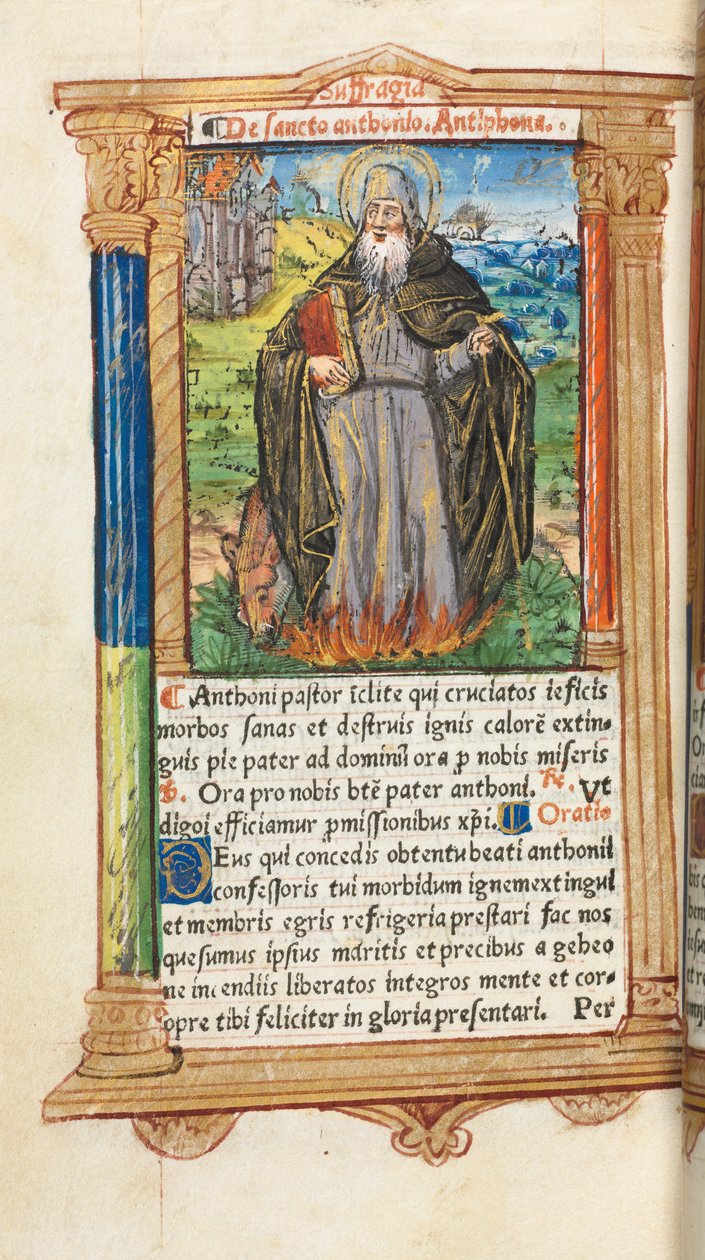 Suffragia
¶De sancto anthonio. Antiphona.
¶ Anthoni pastor īclite qui cruciatos ieficis
morbos sanas et destruis ignis calorē extin-
guis pie pater ad dominū ora ꝑ nobis miseris
℣. Ora pro nobis btē pater anthoni. ℟. Vt
digni efficiamur ꝓmissionibus xp̄i. ¶ Oratio
DEus qui concedis obtentu beati anthonii
confessoris tui morbidum ignem extingui
et membris egris refrigeria prestari fac nos
quesumus ipsius meritis et precibus a gehen
ne incendiis liberatos integros mente et cor-
pore tibi feliciter in gloria presentari. Per